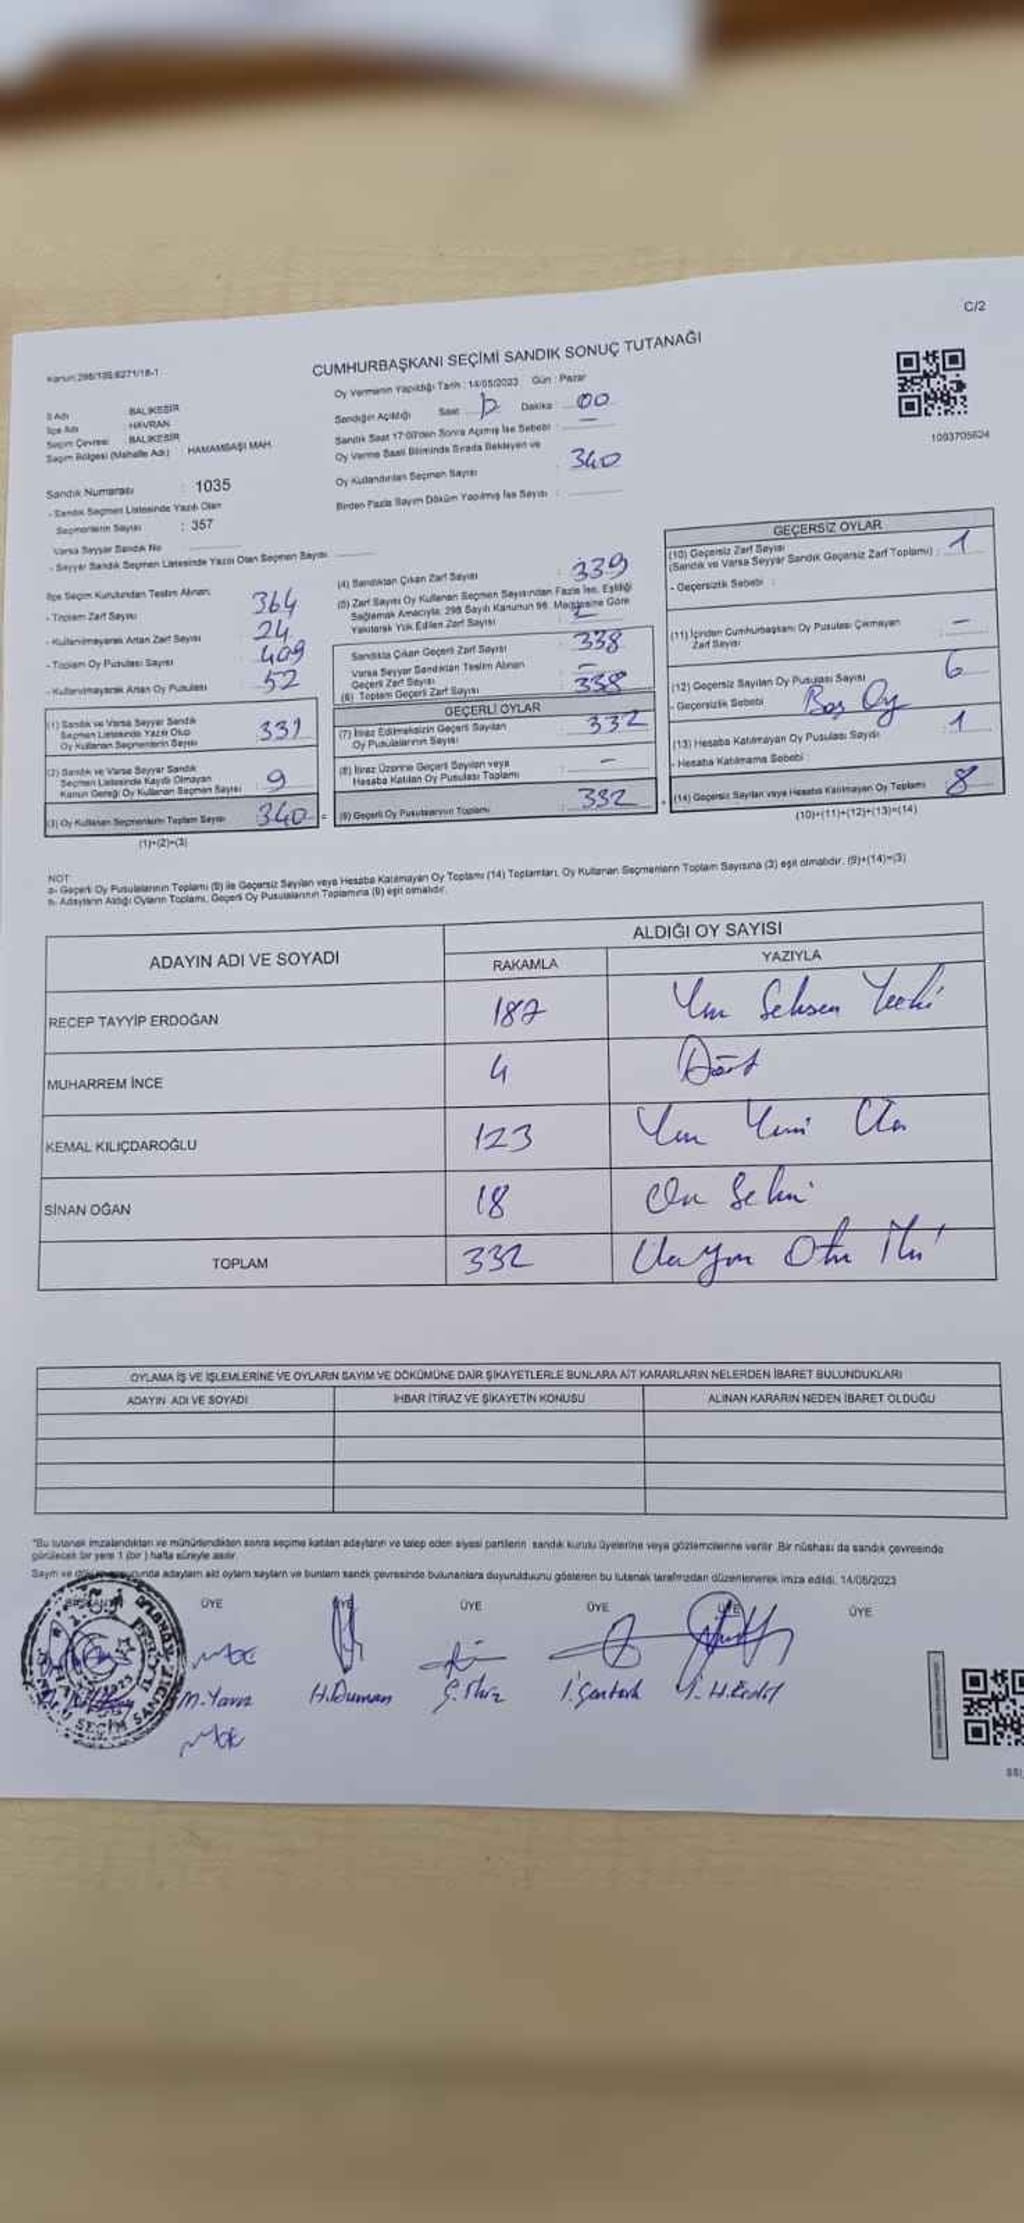 C/2
Kanun:298/105,6271/18-1
CUMHURBAŞKANI SEÇİMİ SANDIK SONUÇ TUTANAĞI
Oy Vermenin Yapıldığı Tarih : 14/05/2023 Gün : Pazar
İl Adı BALIKESİR
İlçe Adı HAVRAN
Seçim Çevresi BALIKESİR
Seçim Bölgesi (Mahalle Adı) HAMAMBAŞI MAH.
Sandığın Açıldığı Saat Dakika : 00
Sandık Saat 17:00'den Sonra Açılmış İse Sebebi : —
Oy Verme Saati Bitiminde Sırada Bekleyen ve
Oy Kullandırılan Seçmen Sayısı : 340
Birden Fazla Sayım Döküm Yapılmış İse Sayısı :
1093705624
Sandık Numarası : 1035
- Sandık Seçmen Listesinde Yazılı Olan
Seçmenlerin Sayısı : 357
Varsa Seyyar Sandık No
- Seyyar Sandık Seçmen Listesinde Yazılı Olan Seçmen Sayısı
İlçe Seçim Kurulundan Teslim Alınan;
- Toplam Zarf Sayısı : 364
- Kullanılmayarak Artan Zarf Sayısı : 24
- Toplam Oy Pusulası Sayısı : 409
- Kullanılmayarak Artan Oy Pusulası : 52
(1) Sandık ve Varsa Seyyar Sandık
Seçmen Listesinde Yazılı Olup
Oy Kullanan Seçmenlerin Sayısı : 331
(2) Sandık ve Varsa Seyyar Sandık
Seçmen Listesinde Kayıtlı Olmayan
Kanun Gereği Oy Kullanan Seçmen Sayısı : 9
(3) Oy Kullanan Seçmenlerin Toplam Sayısı : 340 =
(1)+(2)=(3)
(4) Sandıktan Çıkan Zarf Sayısı : 339
(5) Zarf Sayısı Oy Kullanan Seçmen Sayısından Fazla İse, Eşitliği
Sağlamak Amacıyla, 298 Sayılı Kanunun 98. Maddesine Göre
Yakılarak Yok Edilen Zarf Sayısı
Sandıkta Çıkan Geçerli Zarf Sayısı : 338
Varsa Seyyar Sandıktan Teslim Alınan
Geçerli Zarf Sayısı : —
(6) Toplam Geçerli Zarf Sayısı : 338
GEÇERLİ OYLAR
(7) İtiraz Edilmeksizin Geçerli Sayılan
Oy Pusulalarının Sayısı : 332
(8) İtiraz Üzerine Geçerli Sayılan veya
Hesaba Katılan Oy Pusulası Toplamı : —
(9) Geçerli Oy Pusulalarının Toplamı : 332 +
GEÇERSİZ OYLAR
(10) Geçersiz Zarf Sayısı
(Sandık ve Varsa Seyyar Sandık Geçersiz Zarf Toplamı) : 1
- Geçersizlik Sebebi :
(11) İçinden Cumhurbaşkanı Oy Pusulası Çıkmayan
Zarf Sayısı : —
(12) Geçersiz Sayılan Oy Pusulası Sayısı : 6
- Geçersizlik Sebebi Boş Oy
(13) Hesaba Katılmayan Oy Pusulası Sayısı : 1
- Hesaba Katılmama Sebebi :
(14) Geçersiz Sayılan veya Hesaba Katılmayan Oy Toplamı : 8
(10)+(11)+(12)+(13)=(14)
NOT:
a- Geçerli Oy Pusulalarının Toplamı (9) ile Geçersiz Sayılan veya Hesaba Katılmayan Oy Toplamı (14) Toplamları, Oy Kullanan Seçmenlerin Toplam Sayısına (3) eşit olmalıdır. (9)+(14)=(3)
b- Adayların Aldığı Oyların Toplamı, Geçerli Oy Pusulalarının Toplamına (9) eşit olmalıdır.
ADAYIN ADI VE SOYADI ALDIĞI OY SAYISI
RAKAMLA YAZIYLA
RECEP TAYYİP ERDOĞAN 187 Yüz Seksen Yedi
MUHARREM İNCE 4 Dört
KEMAL KILIÇDAROĞLU 123 Yüz Yirmi Üç
SİNAN OĞAN 18 On Sekiz
TOPLAM 332 Üçyüz Otuz İki
OYLAMA İŞ VE İŞLEMLERİNE VE OYLARIN SAYIM VE DÖKÜMÜNE DAİR ŞİKAYETLERLE BUNLARA AİT KARARLARIN NELERDEN İBARET BULUNDUKLARI
ADAYIN ADI VE SOYADI İHBAR İTİRAZ VE ŞİKAYETİN KONUSU ALINAN KARARIN NEDEN İBARET OLDUĞU
*Bu tutanak imzalandıktan ve mühürlendikten sonra seçime katılan adayların ve talep eden siyasi partilerin sandık kurulu üyelerine veya gözlemcilerine verilir. Bir nüshası da sandık çevresinde
görülecek bir yere 1 (bir) hafta süreyle asılır.
Sayım ve sonucunda adayların aldığı oyların sayılarını ve bunların sandık çevresinde bulunanlara duyurulduğunu gösteren bu tutanak tarafımızdan düzenlenerek imza edildi. 14/05/2023
ÜYE ÜYE ÜYE ÜYE ÜYE ÜYE
M. Yavuz H. Duman İ. Şentürk